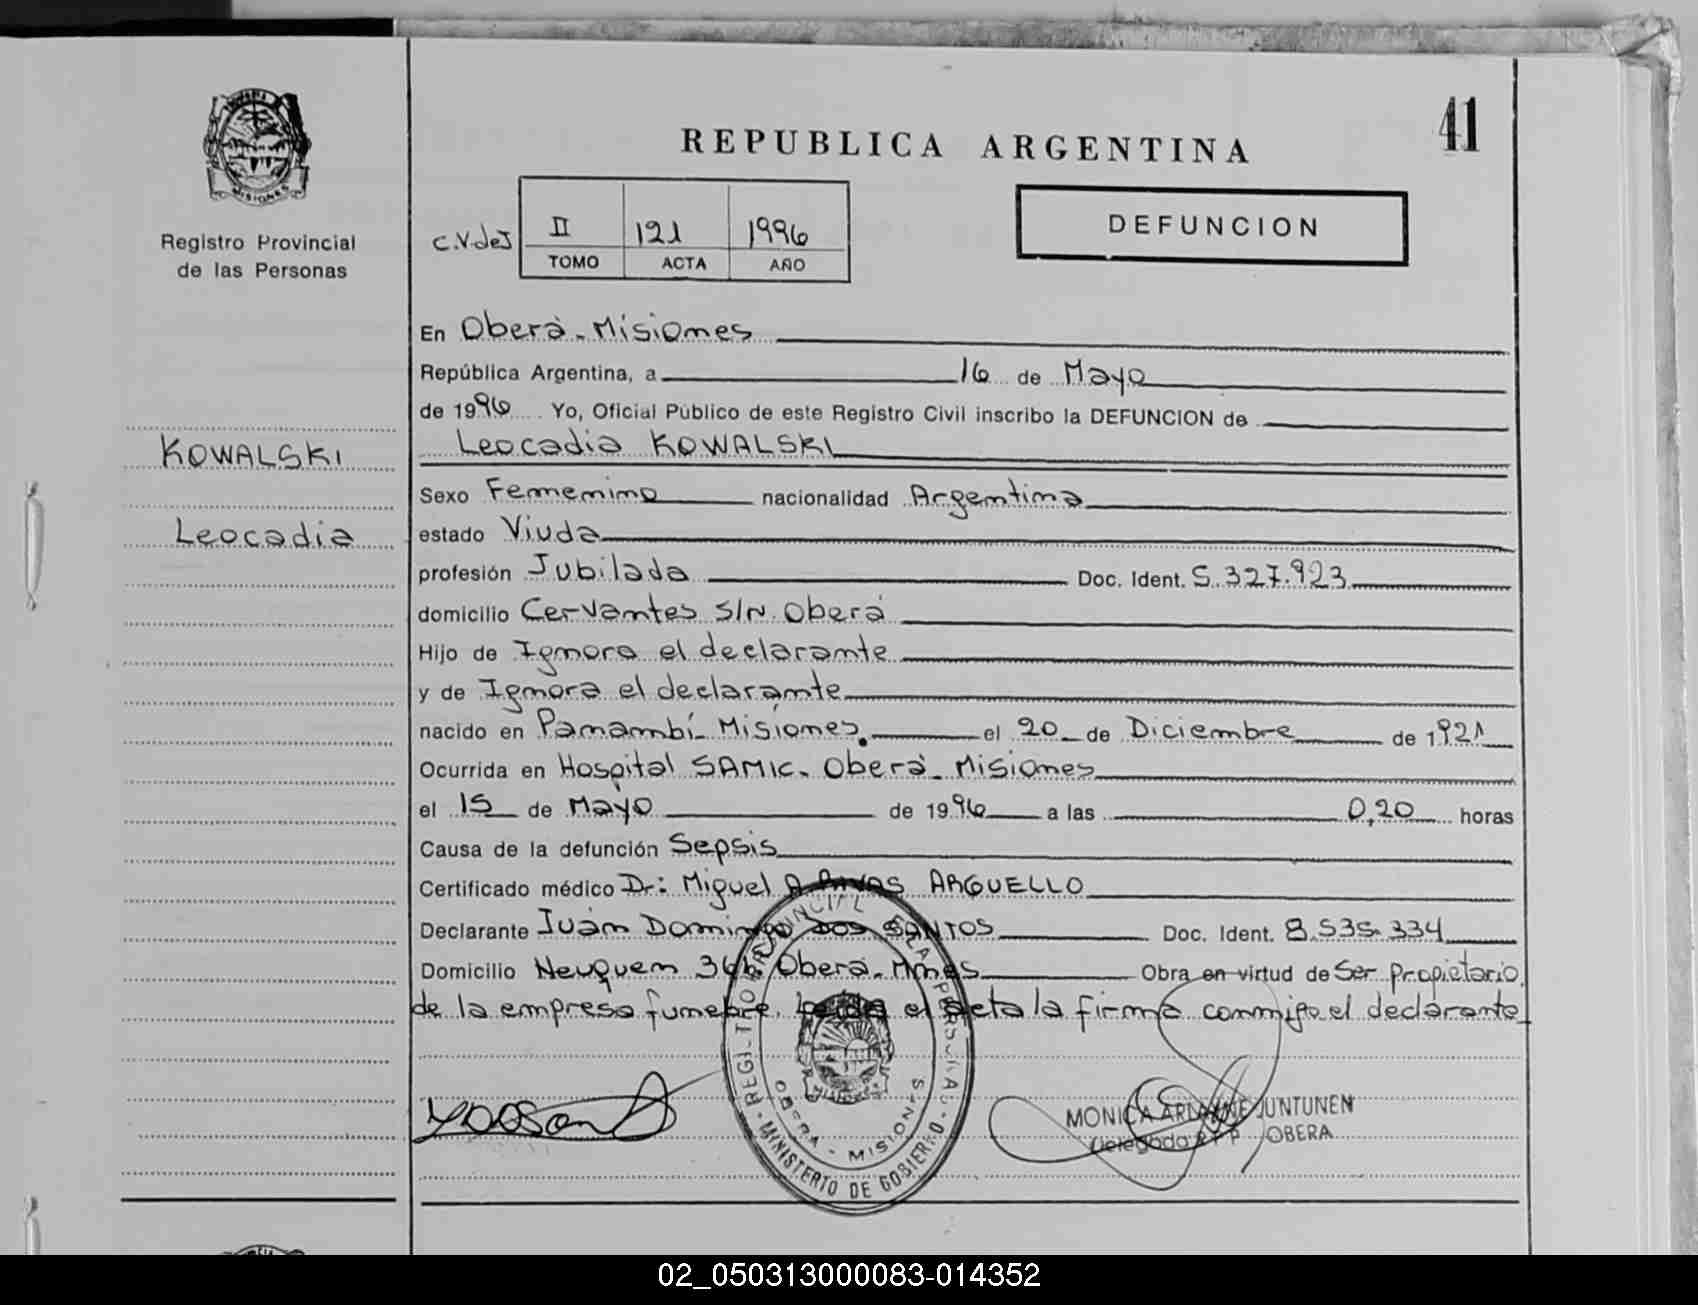 41
REPUBLICA ARGENTINA
MISIONES
Registro Provincial
de las Personas
C.V.deJ
II 121 1996
TOMO ACTA AÑO
DEFUNCION
En Oberà - Misiones
República Argentina, a 16 de Mayo
de 1996 Yo, Oficial Público de este Registro Civil inscribo la DEFUNCION de
Leocadia KOWALSKI
KOWALSKI
Leocadia
Sexo Femenino nacionalidad Argentina
estado Viuda
profesión Jubilada Doc. Ident. 5.327.923
domicilio Cervantes S/N. Oberá
Hijo de Ignora el declarante
y de Ignora el declarante
nacido en Panambí - Misiones. el 20 de Diciembre de 1921
Ocurrida en Hospital SAMIC. Oberà - Misiones
el 15 de Mayo de 1996 a las 0,20 horas
Causa de la defunción Sepsis
Certificado médico Dr: Miguel A RIVAS ARGUELLO
Declarante Juan Domingo DOS SANTOS Doc. Ident. 8.535.334
Domicilio Neuquen 366 Oberá - Mnes Obra en virtud de Ser propietario
de la empresa funebre. Leida el acta la firma conmigo el declarante
REGISTRO PROVINCIAL DE LAS PERSONAS
OBERA - MISIONES
MINISTERIO DE GOBIERNO
MONICA ARIANNE JUNTUNEN
Delegada R P P OBERA
02_050313000083-014352